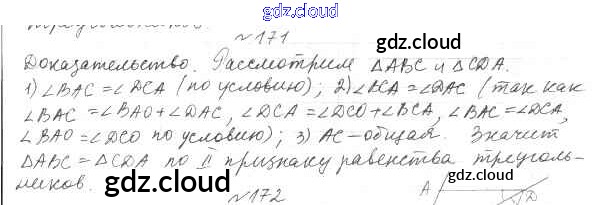 gdz.cloud
треугольников.
№171 gdz.cloud
Доказательство. Рассмотрим △ABC и △CDA.
1) ∠BAC = ∠DCA (по условию); 2) ∠BCA = ∠DAC (так как
∠BAC = ∠BAO + ∠DAC, ∠DCA = ∠DCO + ∠BCA, ∠BAC = ∠DCA,
∠BAO = ∠DCO по условию); 3) AC – общая. Значит
△ABC = △CDA по II признаку равенства треуголь-
ников. gdz.cloud gdz.cloud
№172 A D